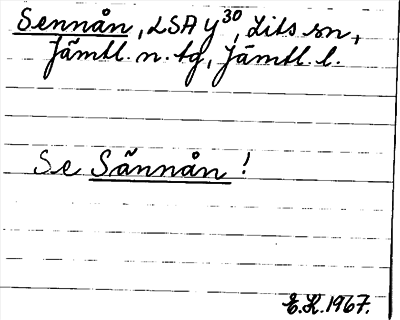 Sennån, LSA y³⁰, Lits sn,
Jämtl. n. tg, Jämtl. l.
Se Sännån!
E.K. 1967.